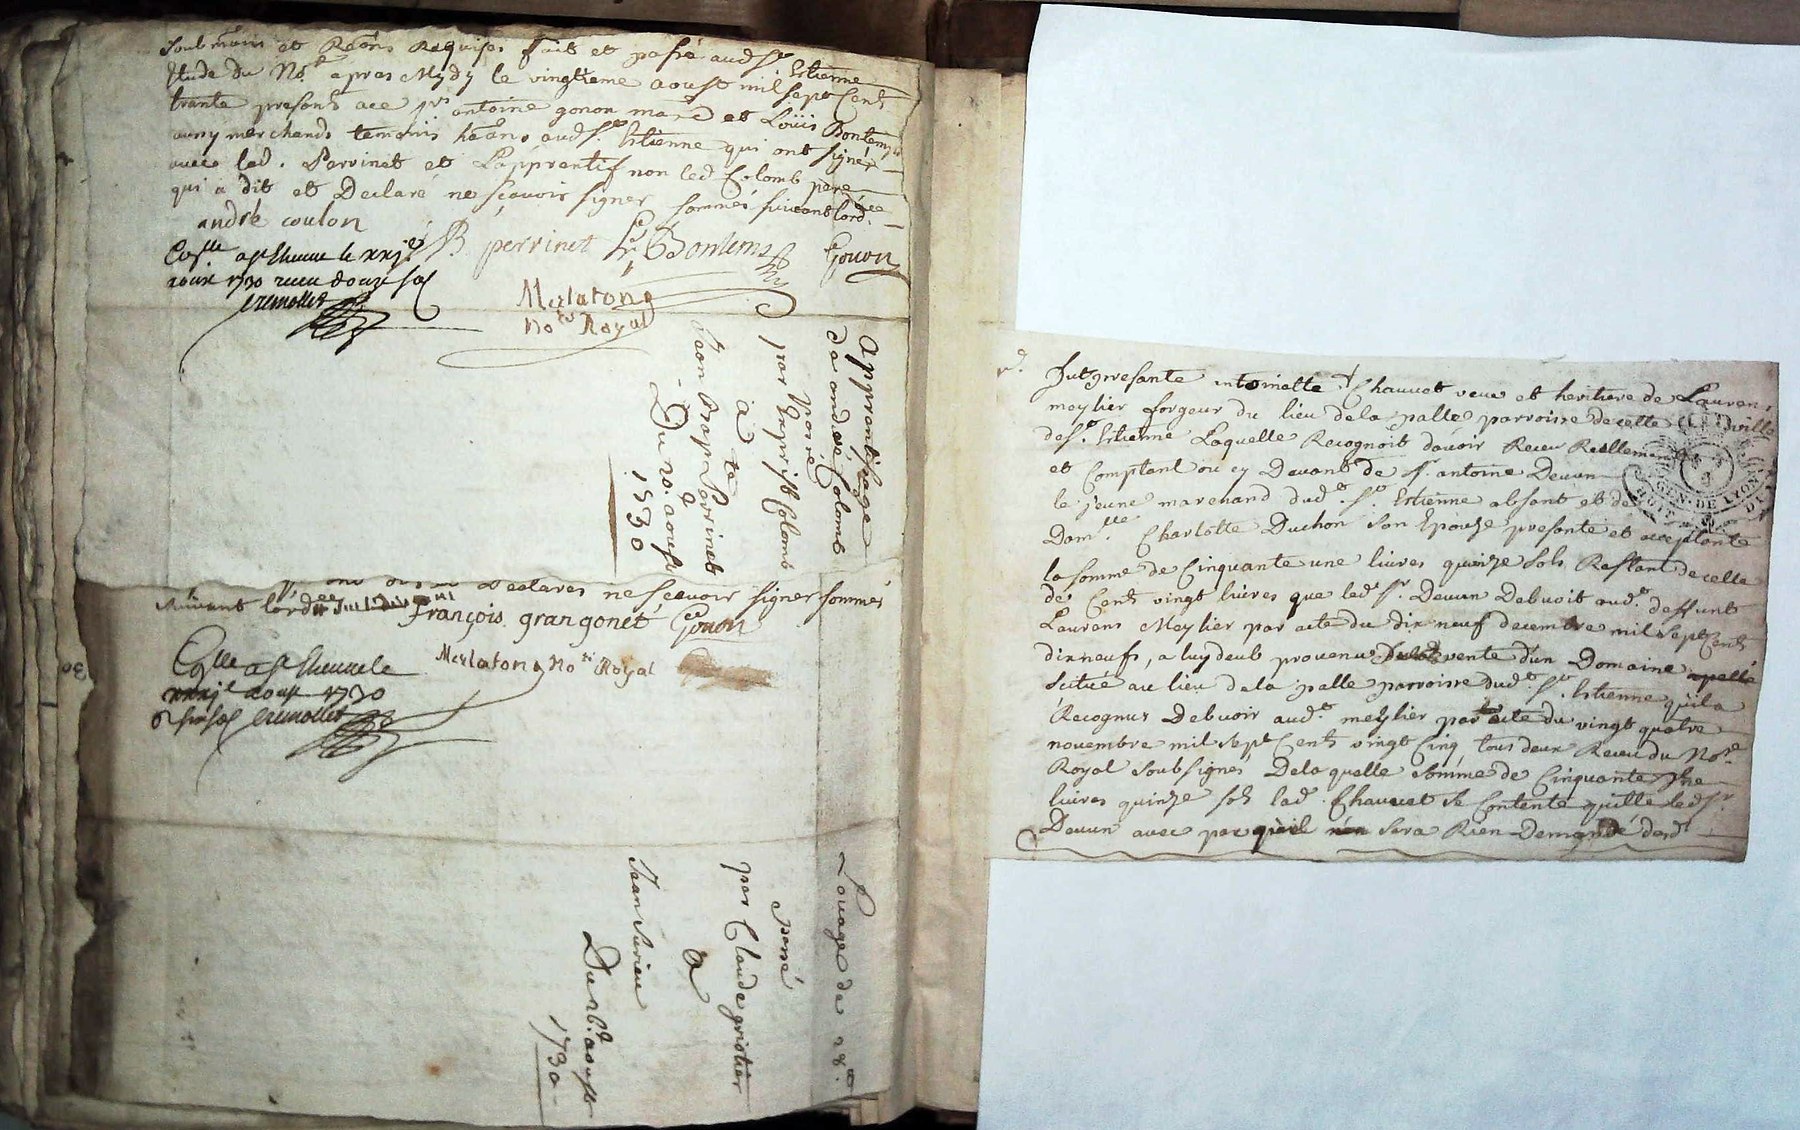 soubmõns et Rãons Requises fait et passé aud St Estienne
Etude du No.re apres Mydy le vingtieme aoust mil sept Cents
trante presents ace antoine gonon march et Loüis Bontemps
aussy merchands temoins aud St. Estienne qui ont signér
avecq led. Perrinet et L'apprentif non led Colomb pere
qui a dit et Declaré ne sçavoir signer sommés suivant lord.ce
andré coulon
perrinet Bontems Gonon
Coll.e a St Etienne le xxj.e
aoux 1730 receu douze sol
cremollet
Merlaton
No.re Royal
Apprentissage
de andré Colomb
passé
par Colomb
à
Jean Bap.te Perrinet
Du 20. aoust
1730
Declares ne scavoir signer sommés
suivant lord.ce
françois grangonét Gonon
Coll.e a St Etienne le
aoux 1730
cremollet
Merlaton No.re Royal
Louage de 28.
passé
par Claude
a
Jean
Du aoust
1730
fut presante intoinette Chauvet veuve et heritiere de Laurens
meylier forgeur du lieu dela palle parroisse decette ville
de St. Estienne Laquelle Recognoit davoir Receu Reellement
et Comptant ou cy Devant de Sr. antoine Devun
le jeune marchand dud.t St. Estienne absant et de
Dam.lle Charlotte Duchon son Epouze presante et acceptante
la somme de Cinquante une livres quinze sols Restant decelle
de Cent vingt livres que led. Sr. Devun Debvoit aud.t deffunt
Laurens Meylier par acte du dix neuf decembre mil sept Cents
dix neuf, a luy deub provenus dela vente d'un Domaine apellé
scitüé au lieu dela palle parroisse dud.t St. Estienne qu'il a
Recognus Debvoir aud.t meylier par acte du vingt quatre
novembre mil sept Cents vingt Cinq tous deux Receu du No.re
Royal soubsignés Delaquelle somme de Cinquante Une
livres quinze sols lad. Chauvet se Contente quitte led Sr.
Devun avec par qu'il n'en sera Rien Demandé
GEN. DE LYON